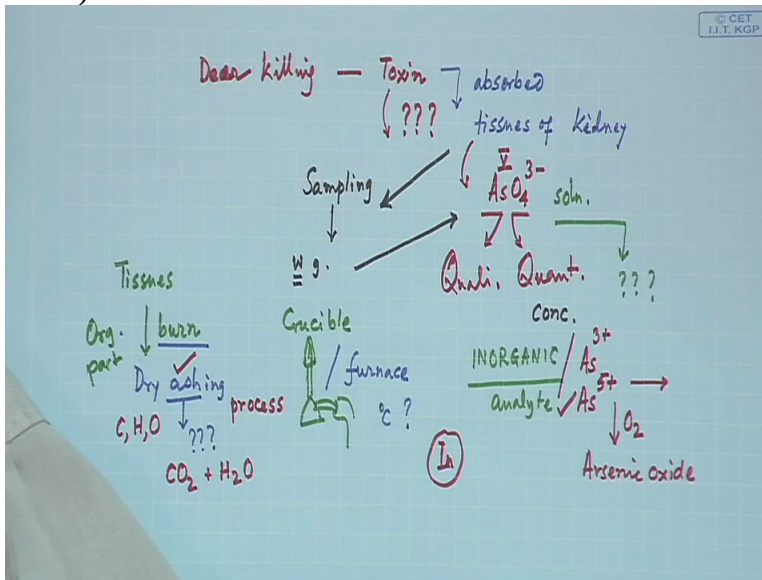 © CET
I.I.T. KGP
Deer killing — Toxin
absorbed
???
tissues of Kidney
Sampling
V
AsO4 3-
soln.
W g.
Quali. Quant.
???
Tissues
Org. part
burn
Dry ashing process
C, H, O
???
CO2 + H2O
Crucible
/ furnace
°C ?
conc.
INORGANIC
analyte
As3+
As5+
O2
Arsenic oxide